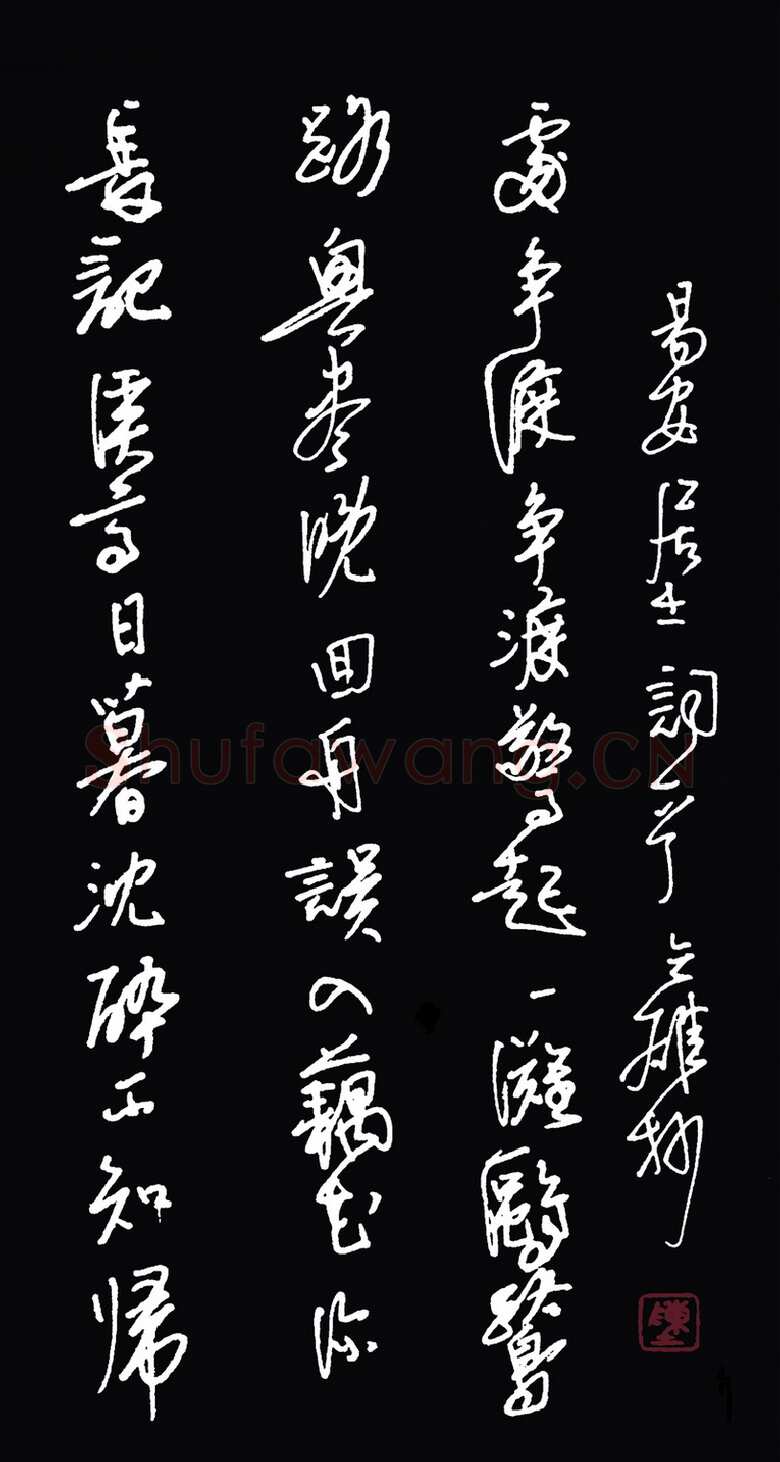 長記溪亭日暮沈醉不知帰
路興盡晚回舟誤入藕花深
處争渡争渡驚起一灘鷗鷺
易安居士詞一首 雄抄
Shufawang.CN